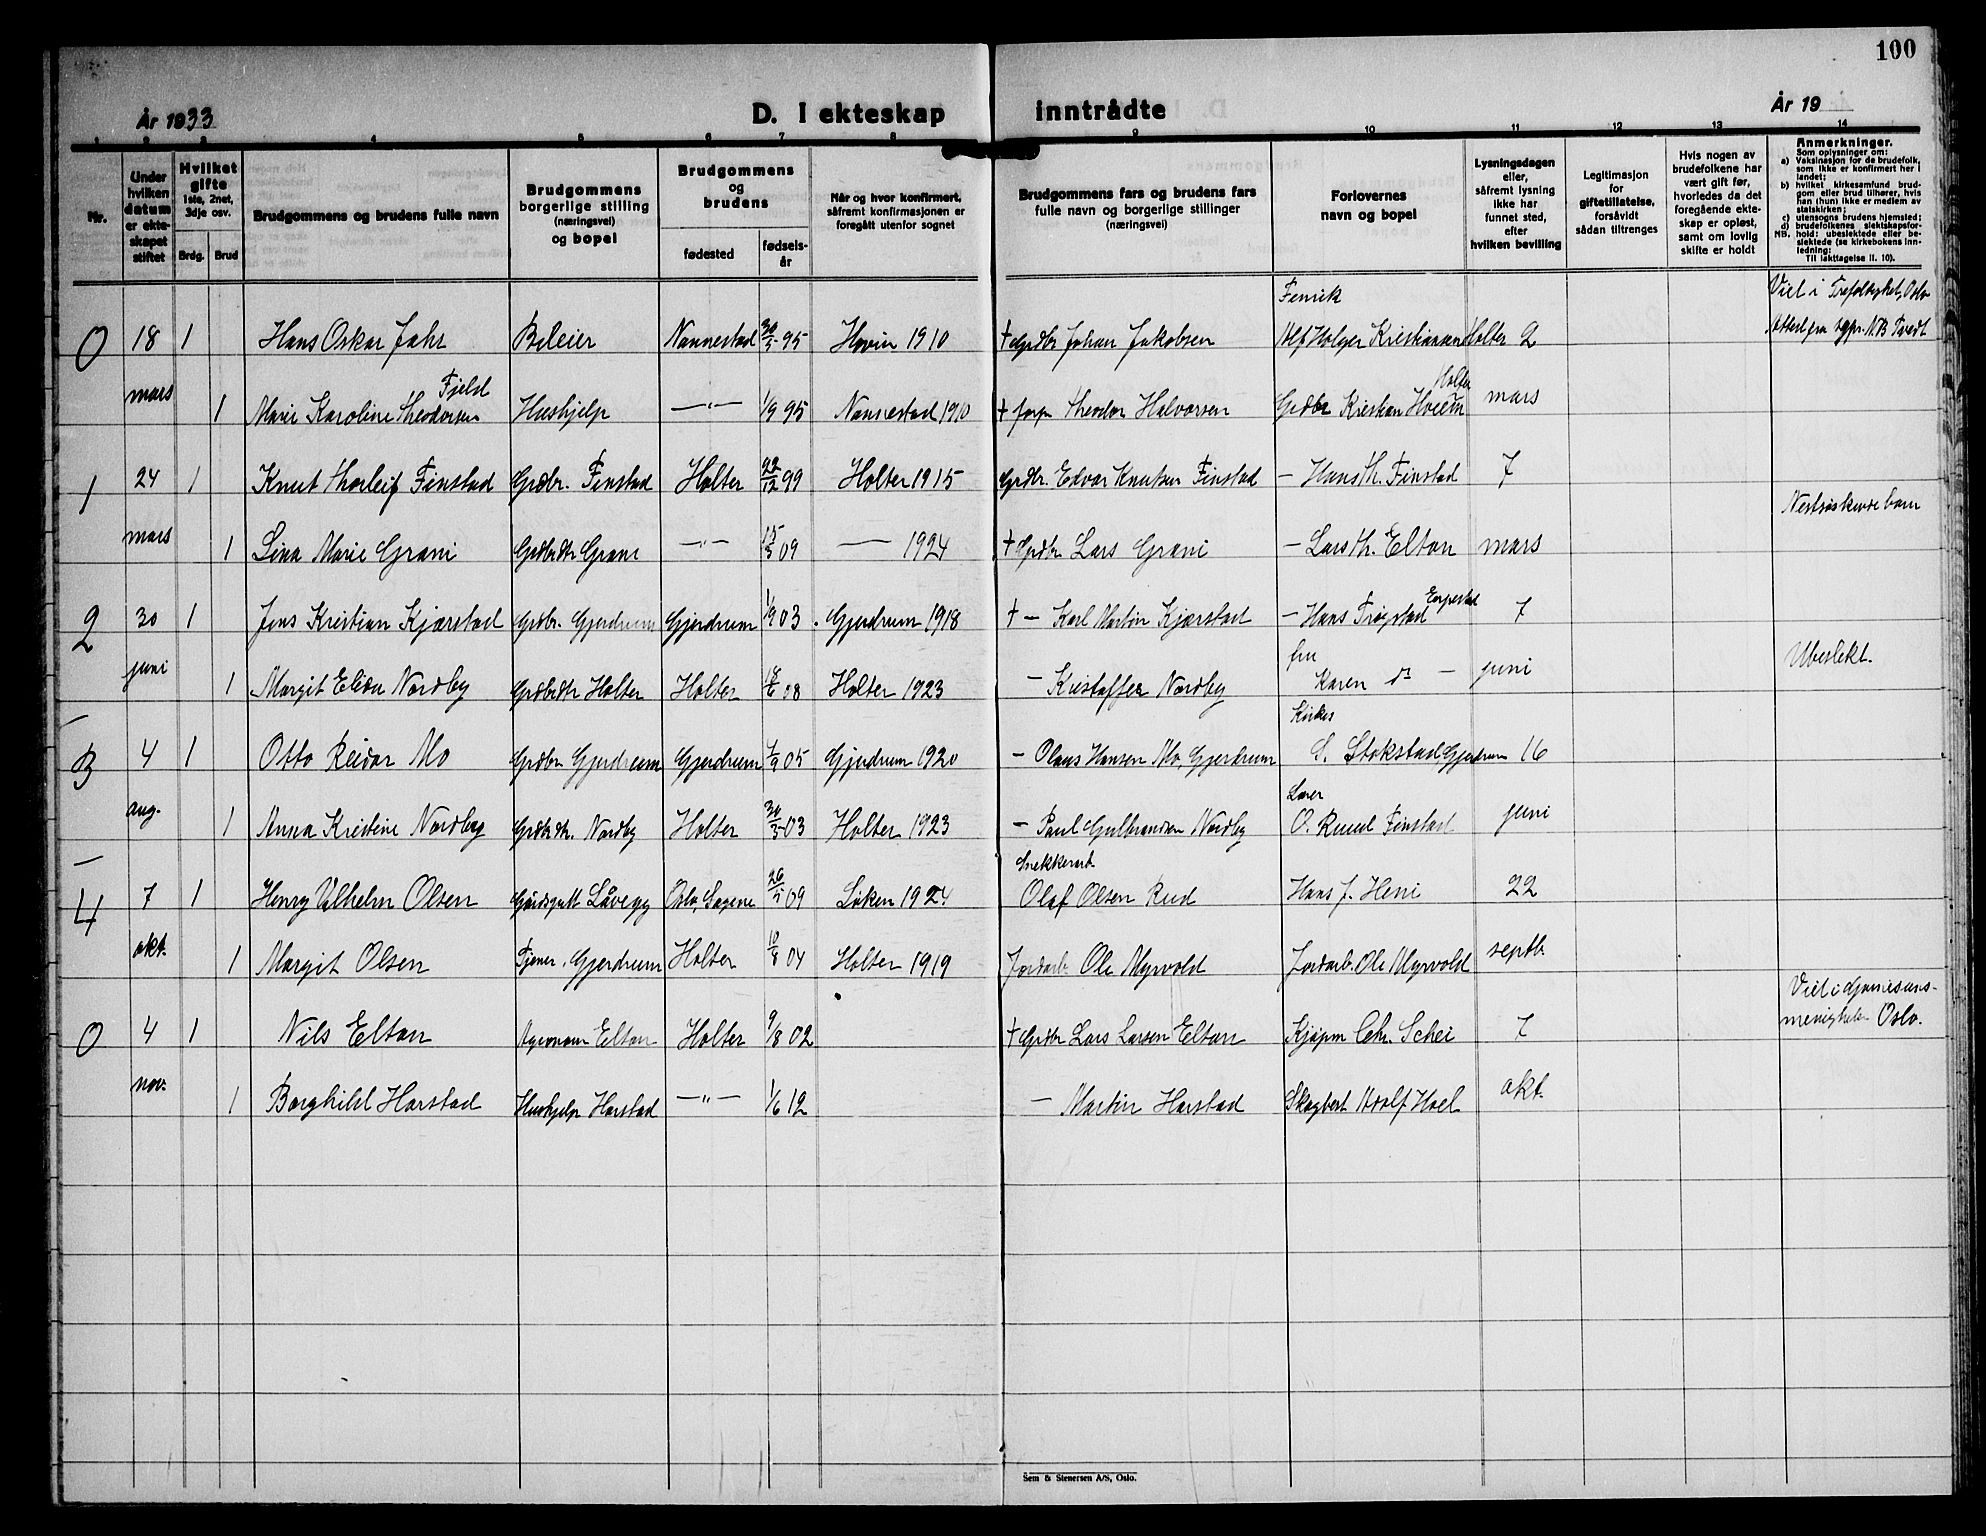 100
År 1933 D. I ekteskap inntrådte År 19
1 2 3 4 5 6 7 8 9 10 11 12 13 14
Nr.
Under hvilken datum er ekteskapet stiftet
Hvilket gifte 1ste, 2net, 3dje osv.
Brdg. Brud
Brudgommens og brudens fulle navn
Brudgommens borgerlige stilling (næringsvei) og bopel
Brudgommens og brudens
fødested fødselsår
Når og hvor konfirmert, såfremt konfirmasjonen er foregått utenfor sognet
Brudgommens fars og brudens fars fulle navn og borgerlige stillinger (næringsvei)
Forlovernes navn og bopel
Lysningsdagen eller, såfremt lysning ikke har funnet sted, efter hvilken bevilling
Legitimasjon for giftetillatelse, forsåvidt sådan tiltrenges
Hvis nogen av brudefolkene har vært gift før, hvorledes da det foregående ekteskap er opløst, samt om lovlig skifte er holdt
Anmerkninger.
Som oplysninger om:
a) Vaksinasjon for de brudefolk, som ikke er konfirmert her i landet;
b) hvilket kirkesamfund brudgom eller brud tilhører, hvis han (hun) ikke er medlem av statskirken;
c) utensogns brudens hjemsted;
d) brudefolkenes slektskapsforhold: ubeslektede eller beslektede (se kirkebokens innledning:
NB. Til iakttagelse II. 10).
0 18 1 Hans Oskar Jahr Bileier Nannestad 30/5 95 Hovin 1910 † Grdbr Johan Jakobsen Fenrik Alf Holger Kristiansen Holter 2 Viel i Trefoldighet, Oslo Attest fra sgpr. N.B. Tvedt
mars 1 Marie Karoline Theodorsen Fjeld Hushjelp —"— 1/9 95 Nannestad 1910 † Theodor Halvorsen Grdbr Kristian Hveem Holter mars
1 24 1 Knut Thorleif Finstad Grdbr. Finstad Holter 22/12 99 Holter 1915 Grdbr. Edvar Knutsen Finstad — Hans Th. Finstad 7 Nestsøskende barn
mars 1 Lina Marie Grani Grdbrdtr Grani —"— 15/5 09 — 1924 † Grdbr Lars Grani — Lars Th. Elton mars
2 30 1 Jens Kristian Kjærstad Grdbr. Gjerdrum Gjerdrum 1/9 03 Gjerdrum 1918 † — Karl Martin Kjærstad — Hans Trøgstad 7 Ubeslekt.
juni 1 Margit Elida Nordby Grdbrdtr Holter Holter 18/6 08 Holter 1923 — Kristoffer Nordby fru Karen do — juni
3 4 1 Otto Reidar Mo Grdbr Gjerdrum Gjerdrum 4/9 05 Gjerdrum 1920 — Olaus Hansen Mo, Gjerdrum Kirkes S. Stokstad, Gjerdrum 16
aug. 1 Anna Kristine Nordby Grdbrdtr. Nordby Holter 30/5 03 Holter 1923 — Paul Gulbrandsen Nordby Lærer O. Ruud Finstad juni
4 7 1 Henry Vilhelm Olsen Gårdsgutt Låvegg Oslo, Sagene 26/5 09 Løken 1924 Snekkerarb. Olaf Olsen Rud Hans J. Heni 22
okt. 1 Margit Olsen Tjener, Gjerdrum Holter 10/8 04 Holter 1919 Jordarb. Ole Myrvold Jordarb. Ole Myrvold septb.
0 4 1 Nils Elton Agronom Elton Holter 9/8 02 † Grdbr Lars Larsen Elton Kjøpm Chr. Schei 7 Viet i menighet Oslo.
nov. 1 Borghild Harstad Hushjelp Harstad —"— 1/6 12 — Martin Harstad Skogbest Adolf Hoel okt.
Sem & Stenersen A/S, Oslo.